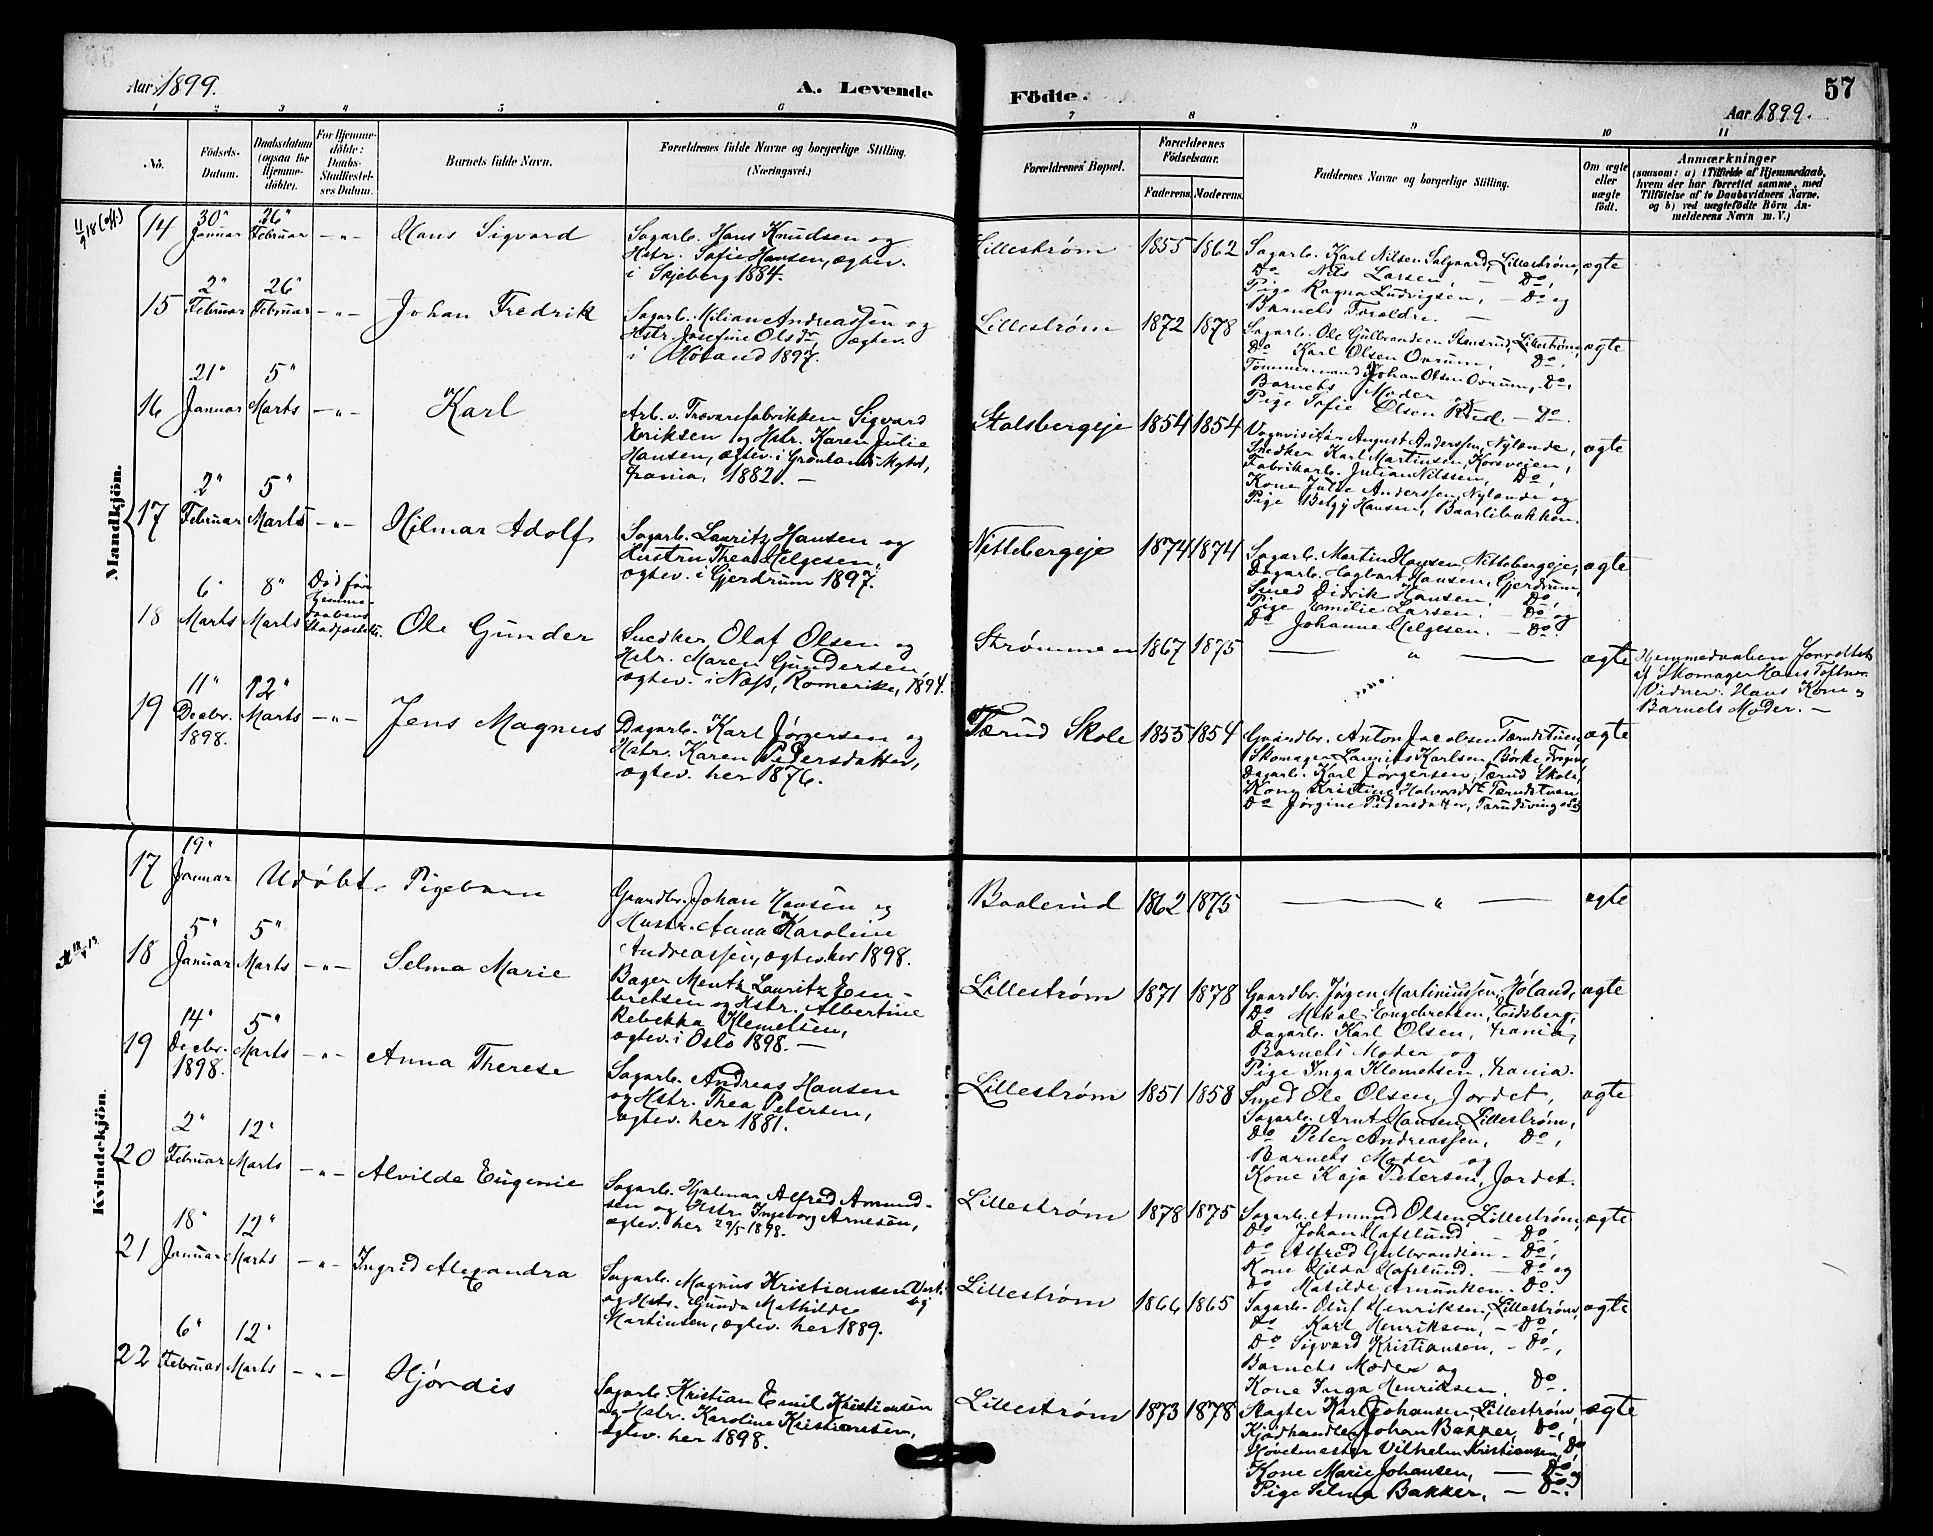 Aar 1899.
A. Levende
Födte.
57
Aar 1899.
1 2 3 4 5 6 7 8 9 10 11
No.
Födsels-Datum.
Daabsdatum (ogsaa for Hjemme-döbte).
For Hjemme-döbte: Daabs-Stadfæstel-ses Datum.
Barnets fulde Navn.
Forældrenes fulde Navne og borgerlige Stilling. (Næringsvei.)
Forældrenes Bopæl.
Forældrenes Födselsaar.
Faderens. Moderens.
Faddernes Navne og borgerlige Stilling.
Om ægte eller uægte födt.
Anmærkninger
(saasom: a) i Tilfælde af Hjemmedaab,
hvem der har forrettet samme, med
Tilföielse af to Daabsvidners Navne,
og b) ved uægtefödte Börn An-
melderens Navn m. V.)
Mandkjön.
14 30" Januar 26" Februar — " — Hans Sigvard
Sagarb. Hans Knudsen og
Hstr. Sofie Hansen, ægtev.
i Skjeberg 1884.
Lillestrøm 1855 1862
Sagarb. Karl Nilsen Salgaard, Lillestrøm,
Do Nils Larsen, — Do,
Pige Ragna Ludvigsen, — Do og
Barnets Forældre. —
ægte
15 2" Februar 26" Februar — " — Johan Fredrik
Sagarb. Milian Andreassen og
Hstr. Josefine Olsdr, ægtev.
i Höland 1897.
Lillestrøm 1872 1878
Sagarb. Ole Gulbrandsen Stensrud, Lillestrøm,
Do Karl Olsen Ovrum, Do,
Tømmermand Johan Olsen Ovrum, Do,
Barnets Moder og
Pige Sofie Olsen Rud. — Do.
ægte
16 21" Januar 5" Marts — " — Karl
Arb. v. Trævarefabrikken Sigvard
Eriksen og Hstr. Karen Julie
Hansen, ægtev. i Grønlands Mghd,
Krania, 1882. —
Stalsbergeje 1854 1854
Vognvisitør August Anderssen, Nylande,
Snedker Karl Martinsen, Korsvejen,
Fabrikarb. Julian Nilssen, Do,
Kone Julie Anderssen, Nylande og
Pige Betzy Hansen, Baarlibakken.
ægte
17 2" Februar 5" Marts — " — Hilmar Adolf
Sagarb. Lauritz Hansen og
Hustru Thea Helgesen,
ægtev. i Gjerdrum 1897.
Nittebergeje 1874 1874
Sagarb. Martin Hansen, Nittebergeje,
Dagarb. Hagbart Hansen, Gjerdrum,
Smed Didrik Hansen, Do,
Pige Emilie Larsen. — Do og
Do Johanne Helgesen. — Do
ægte
18 6" Marts 8" Marts Død før Hjemme-daabens Stadfæstelse. Ole Gunder
Snedker Olaf Olsen og
Hstr. Maren Gundersen,
ægtev. i Næs, Romerike, 1894.
Strømmen 1867 1875
— " —
ægte
Hjemmedaaben forrettet
af Skomager Hans Toftner
Vidner: Hans Kone og
Barnets Moder. —
19 11" Decbr. 1898. 12" Marts — " — Jens Magnus
Dagarb. Karl Jørgersen og
Hstr. Karen Pedersdatter,
ægtev. her 1876.
Tærud Skole 1855 1854
Gaardbr. Anton Jacobsen Tærudstuen,
Skomager Laurits Karlsen, Børke, Frogner,
Dagarb. Karl Jørgersen, Tærud Skole,
Kone Kristine Halvorsdt. Tærudstuen
Do Jørgine Pedersdatter, Tærudsvingen
ægte
Kvindekjön.
17 19" Januar Udøbt Pigebarn
Gaardbr. Johan Hansen og
Hustr. Anna Karoline
Andreassen, ægtev. her 1898.
Baalerud 1862 1875
— " —
ægte
18 5" Januar 5" Marts — " — Selma Marie
Bager Mentz Lauritz Em-
bretsen og Hstr. Albertine
Rebekka Klemetsen,
ægtev. i Oslo 1898. —
Lillestrøm 1871 1878
Gaardbr. Jørgen Martiniussen, Høland,
Do Mikal Engebretsen, Eidsberg,
Dagarb. Karl Olsen, Krania,
Barnets Moder og
Pige Inga Klemetsen, Krania.
ægte
19 14" Decbr. 1898. 5" Marts — " — Anna Therese
Sagarb. Andreas Hansen
og Hstr. Thea Petersen,
ægtev. her 1881.
Lillestrøm 1851 1858
Smed Ole Olsen, Jordet,
Sagarb. Arnt Hansen, Lillestrøm,
Do Peter Andreassen, Do,
Barnets Moder og
Kone Kaja Petersen, Jordet.
ægte
20 2" Februar 12" Marts — " — Alvilde Eugenie
Sagarb. Hjalmar Alfred Amund-
sen og Hstr. Ingeborg Arnesen,
ægtev. her 29/5 1898.
Lillestrøm 1878 1875
Sagarb. Amund Olsen, Lillestrøm,
Do Johan Hafslund — Do,
Do Alfred Gulbrandsen — Do,
Kone Hilda Hafslund. — Do og
Do Matilde Amundsen. Do.
ægte
21 18" Januar 12" Marts — " — Ingrid Alexandra
Sagarb. Magnus Kristiansen
og Hstr. Gunda Mathilde
Martinsen, ægtev. her 1889.
Lillestrøm 1866 1865
Sagarb. Oluf Henriksen, Lillestrøm,
Do Karl Henriksen, — Do,
Do Sigvard Kristiansen, — Do,
Barnets Moder og
Kone Inga Henriksen. Do.
ægte
22 6" Februar 12" Marts — " — Hjørdis
Sagarb. Kristian Emil Kristiansen
og Hstr. Karoline Kristiansen,
ægtev. her 1898.
Lillestrøm 1873 1878
Slagter Karl Johansen, Lillestrøm,
Kjødhandler Johan Bakker, Do,
Høvelmester Vilhelm Kristiansen, Do
Kone Marie Johansen, — Do og
Pige Selma Bakker. — Do.
ægte